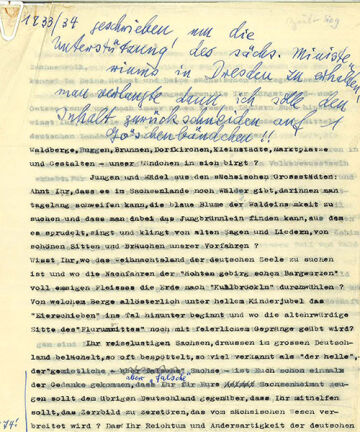 1933/34 geschrieben um die
Unterstützung des sächs. Ministe-
riums in Dresden zu erhalten
man verlangte dann ich solle den
Inhalt zurückschneiden auf 1
!!
Waldberge, Burgen, Brunnen, Dorfkirchen, Kleinstädte, Marktplätze
und Gestalten - unser Ländchen in sich birgt ?
Jungen und Mädel aus den sächsischen Grossstädten:
Ahnt Ihr, dass es im Sachsenlande noch Wälder gibt, darinnen man
tagelang schweifen kann, die blaue Blume der Waldeinsamkeit zu
suchen und dass man dabei das Jungbrünnlein finden kann, aus dem
es sprudelt, singt und klingt von alten Sagen und Liedern, von
schönen Sitten und Bräuchen unserer Vorfahren ?
Wisst Ihr, wo das Weihnachtsland der deutschen Seele zu suchen
ist und wo die Nachfahren der "Rohten gebirg schen Bargwerzen"
voll emsigen Fleisses die Erde nach "Kuhlbröckln" durchwühlen ?
Von welchem Berge allösterlich unter hellem Kinderjubel das
"Eierschieben" ins Tal hinunter beginnt und wo die altehrwürdige
Sitte des "Flurumrittes" noch mit feierlichem Gepränge geübt wird?
Ihr reiselustigen Sachsen, draussen im grossen Deutsch-
land belächelt, so oft bespöttelt, so viel verkannt als "der helle",
"der gemietliche - Sachse - ist Euch schon einmal
aber "falsche"
der Gedanke gekommen, dass Ihr für Eure Sachsenheimat zeu-
gen sollt dem übrigen Deutschland gegenüber, dass Ihr mithelfen
sollt, das Zerrbild zu zerstören, das von sächsischem Wesen ver-
breitet wird ? Das Ihr Reichtum und Andersartigkeit der deutschen